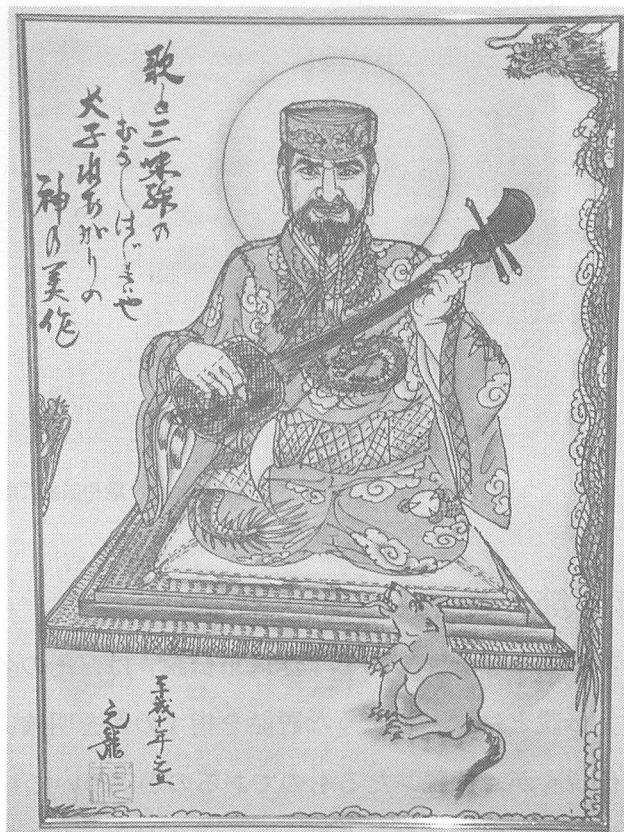 歌と三味線の
むかしはじまりや
犬子ねあがりの
神の美作
平成十年元旦
元龍